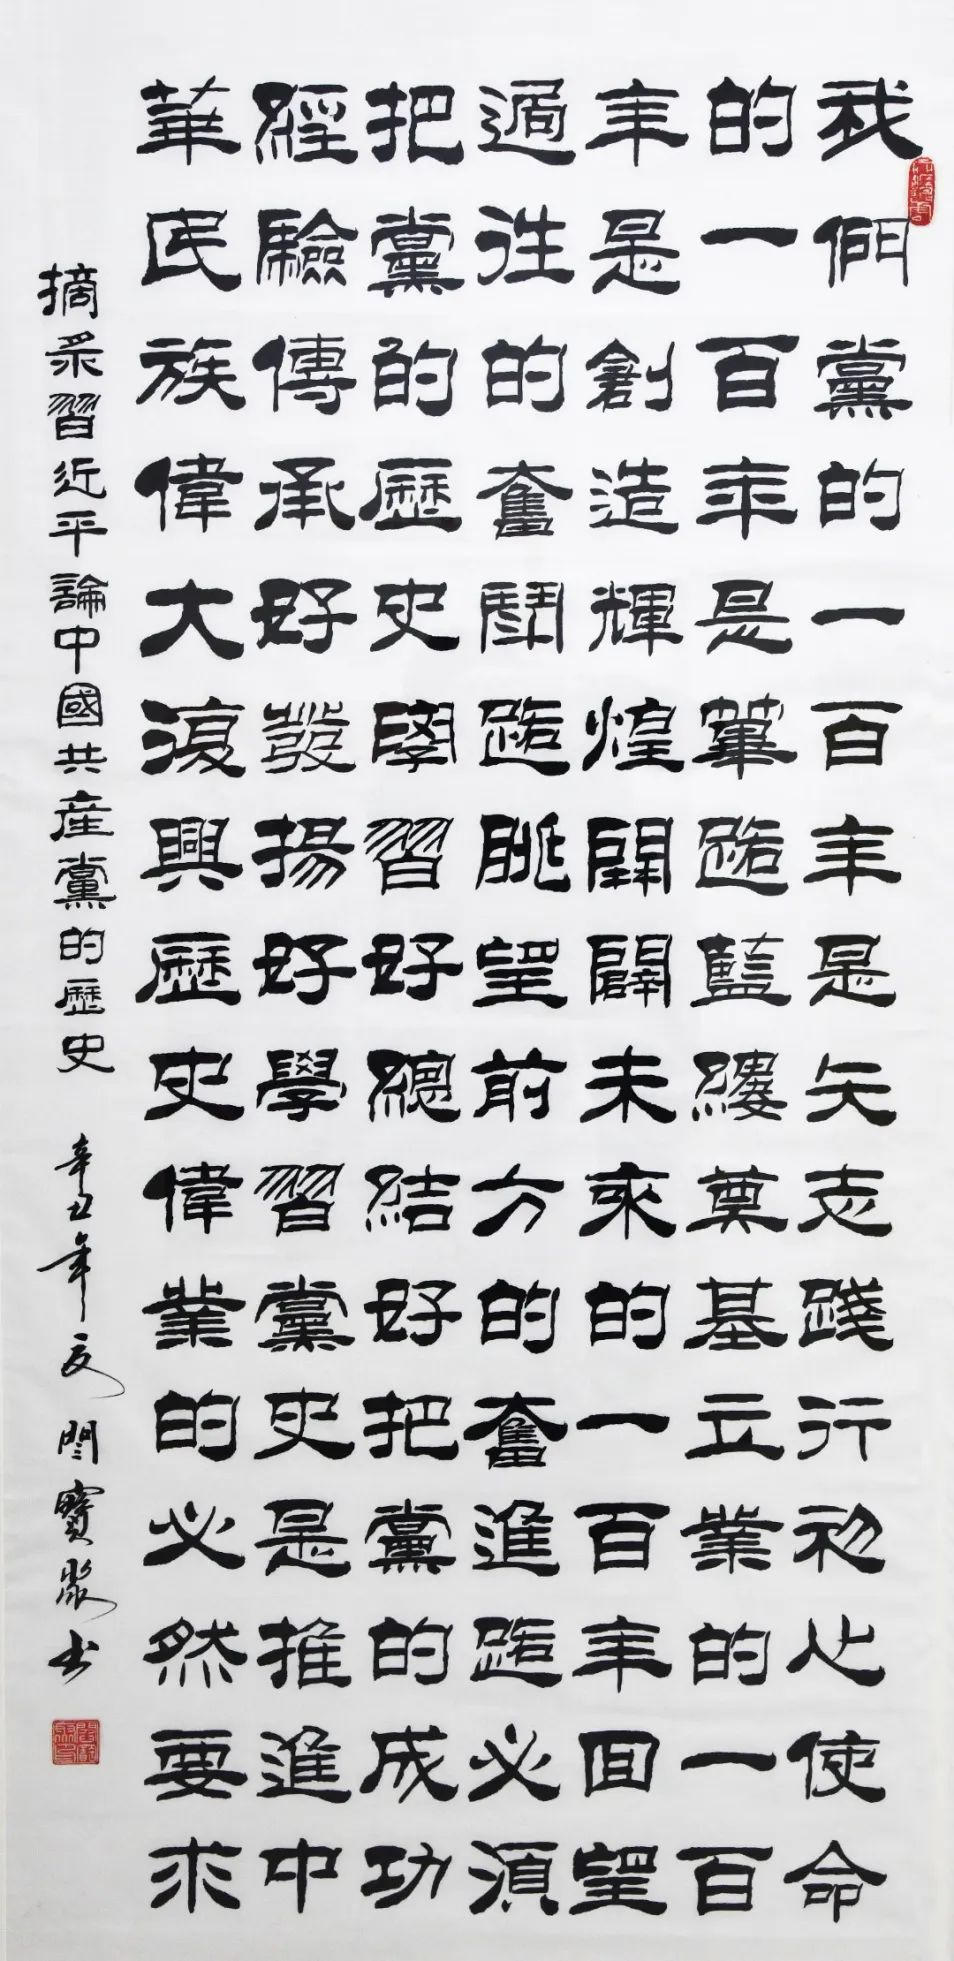 我們黨的一百年是矢志踐行初心使命
的一百年是篳路藍縷奠基立業的一百
年是創造輝煌開闢未來的一百年回望
過往的奮鬥路眺望前方的奮進路必須
把黨的歷史學習好總結好把黨的成功
經驗傳承好發揚好學習黨史是推進中
華民族偉大復興歷史偉業的必然要求
摘录習近平論中國共産黨的歷史 辛丑年夏 閆寶书